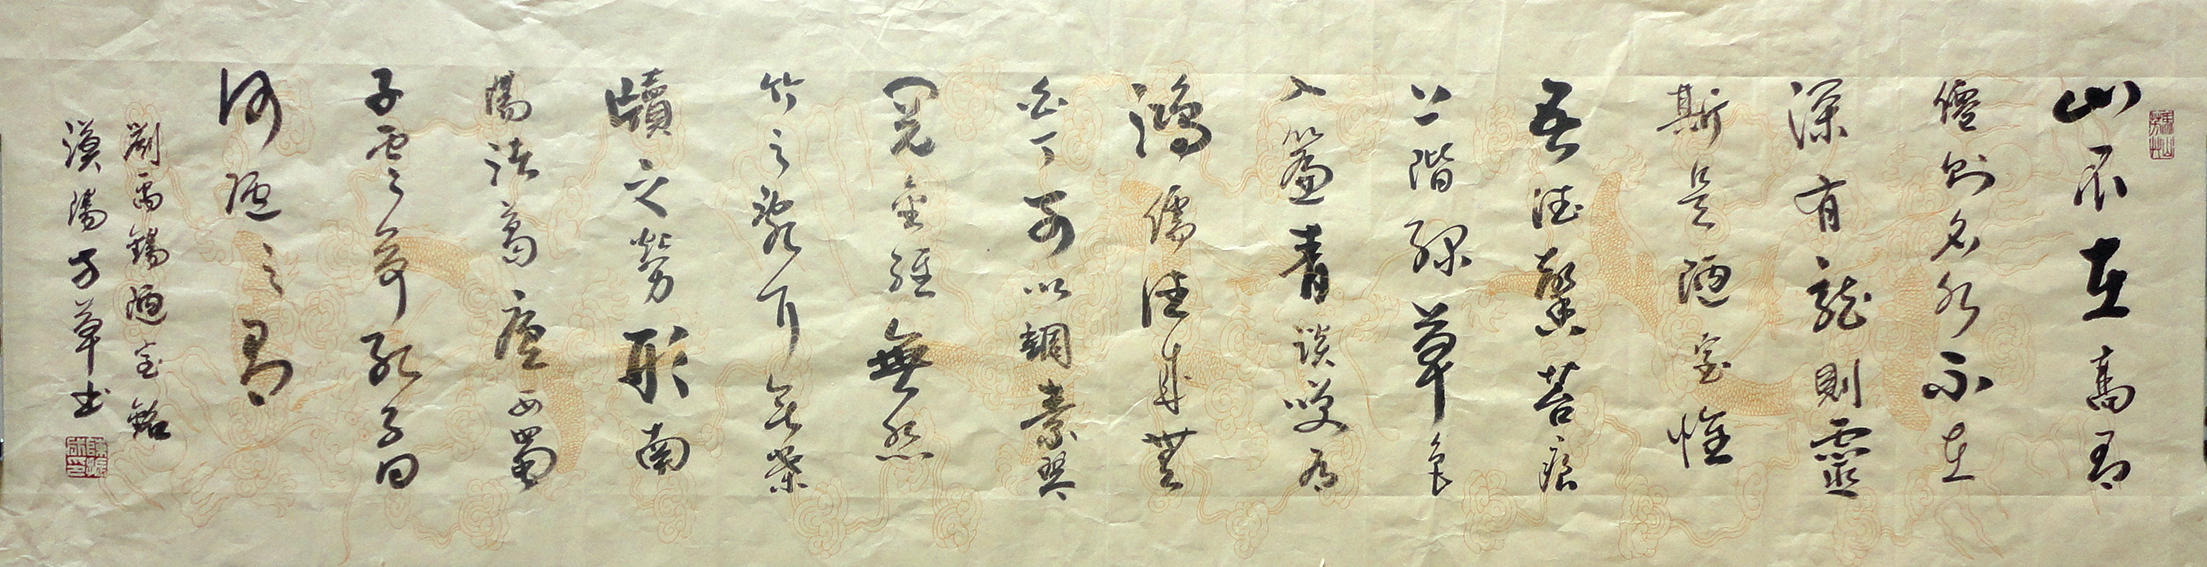 山不在高有
僊則名水不在
深有龍則靈
斯是陋室惟
吾德馨苔痕
上階綠草色
入簾青談笑有
鴻儒往來無
白丁可以調素琴
閱金經無絲
竹之亂耳無案
牘之勞形南
陽諸葛廬西蜀
子雲亭孔子曰
何陋之有
劉禹錫陋室銘
漢陽方草书